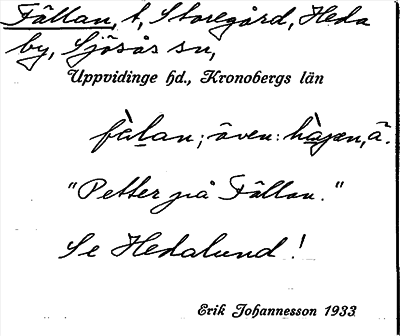 Fällan, t, Storegård, Heda
by, Sjösås sn,
Uppvidinge hd., Kronobergs län
fàlan; även: hàgen, ä.
"Petter på Fällan."
Se Hedalund!
Erik Johannesson 1933